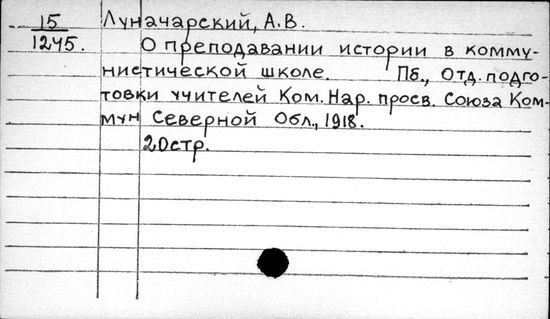 15 Луначарский, А.В.
1245. О преподавании истории в комму-
нистической школе. Пб., Отд. подго-
товки учителей Ком. Нар. просв. Союза Ком-
мун Северной Обл., 1918.
20стр.